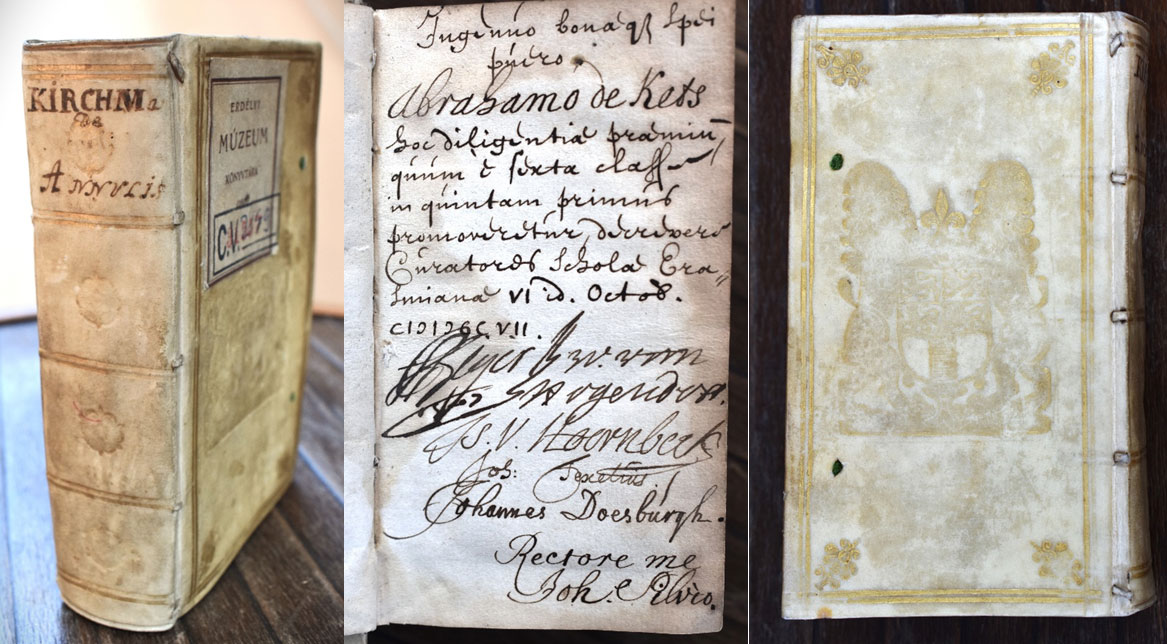 KIRCHMa
de
ANNVLIS
ERDÉLYI
MÚZEUM
KÖNYVTÁRA
C.V.
Ingenuo bonæq́; spei
puero,
Abrahamo de Kets
hoc diligentiæ præmiū
quum è sexta classe
in quintam primus
promoveretur, decrevere
Curatores Scholæ Era„
smianæ VI id. Octob.
CIↃIↃCCVII.
van
Hogendorp.
Js. V. Hoornbeeck
Joh: Texelius.
Johannes Doesburgh.
Rectore me
Joh.e Pilvio.